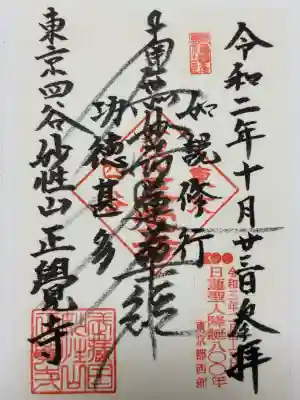 令和二年十月廿三日奉拝
如説修行
南無妙法蓮華経
功徳甚多
東京四谷妙性山正覺寺
日蓮聖人降誕八〇〇年
東京都西部